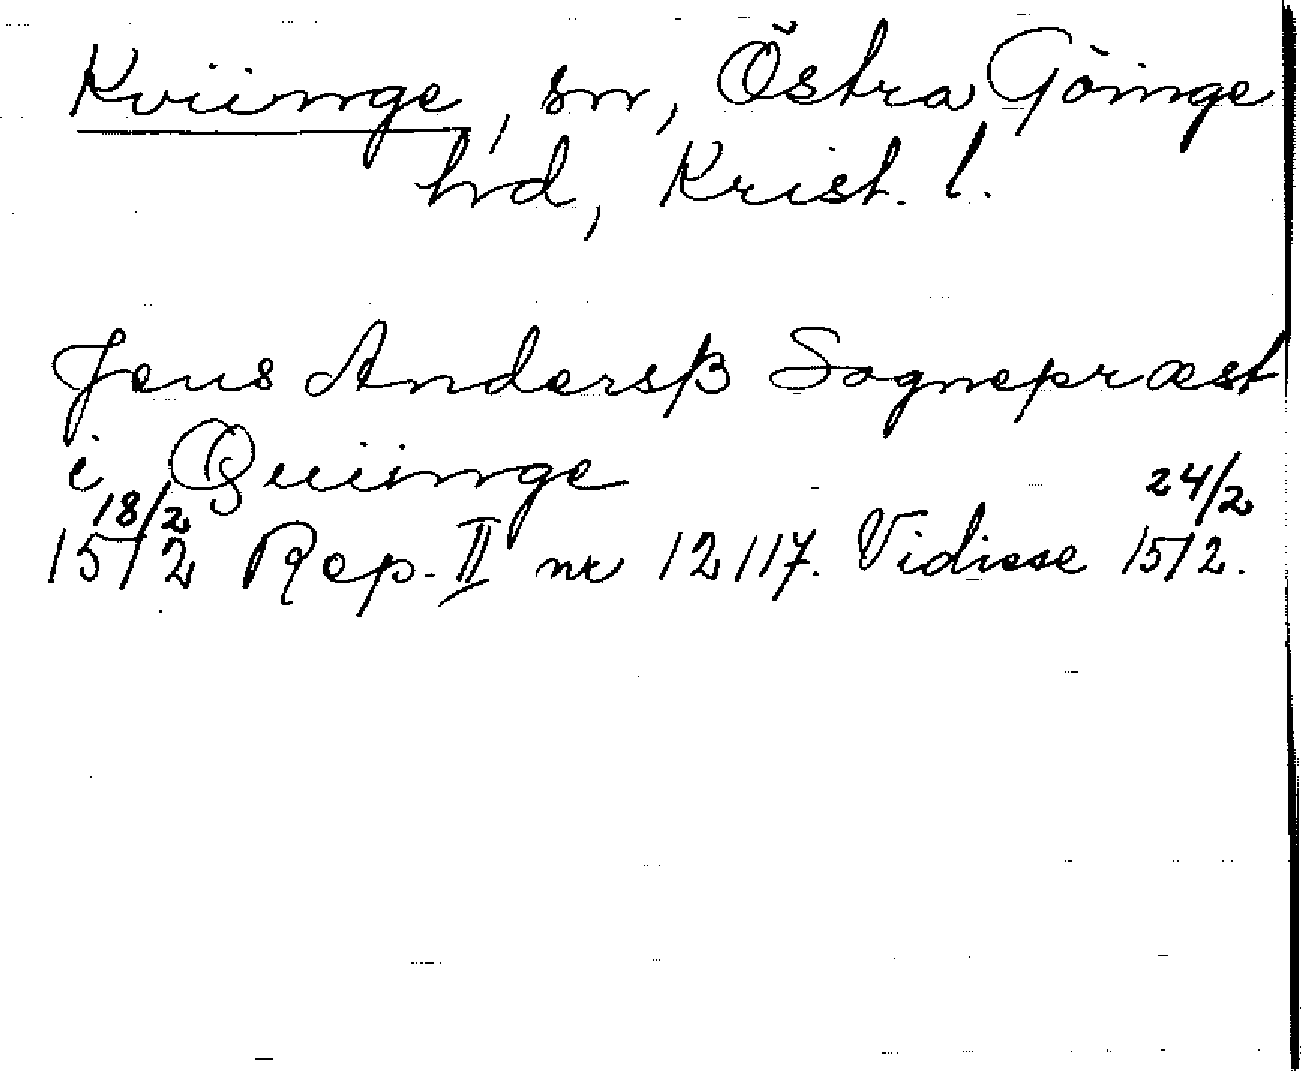 Kviinge, sn, Östra Göinge
hd, Krist. l.
Jens Andersß Sognepræst
i Quiinge
18/2 24/2
1512 Rep. II nr 12117. Vidisse 1512.